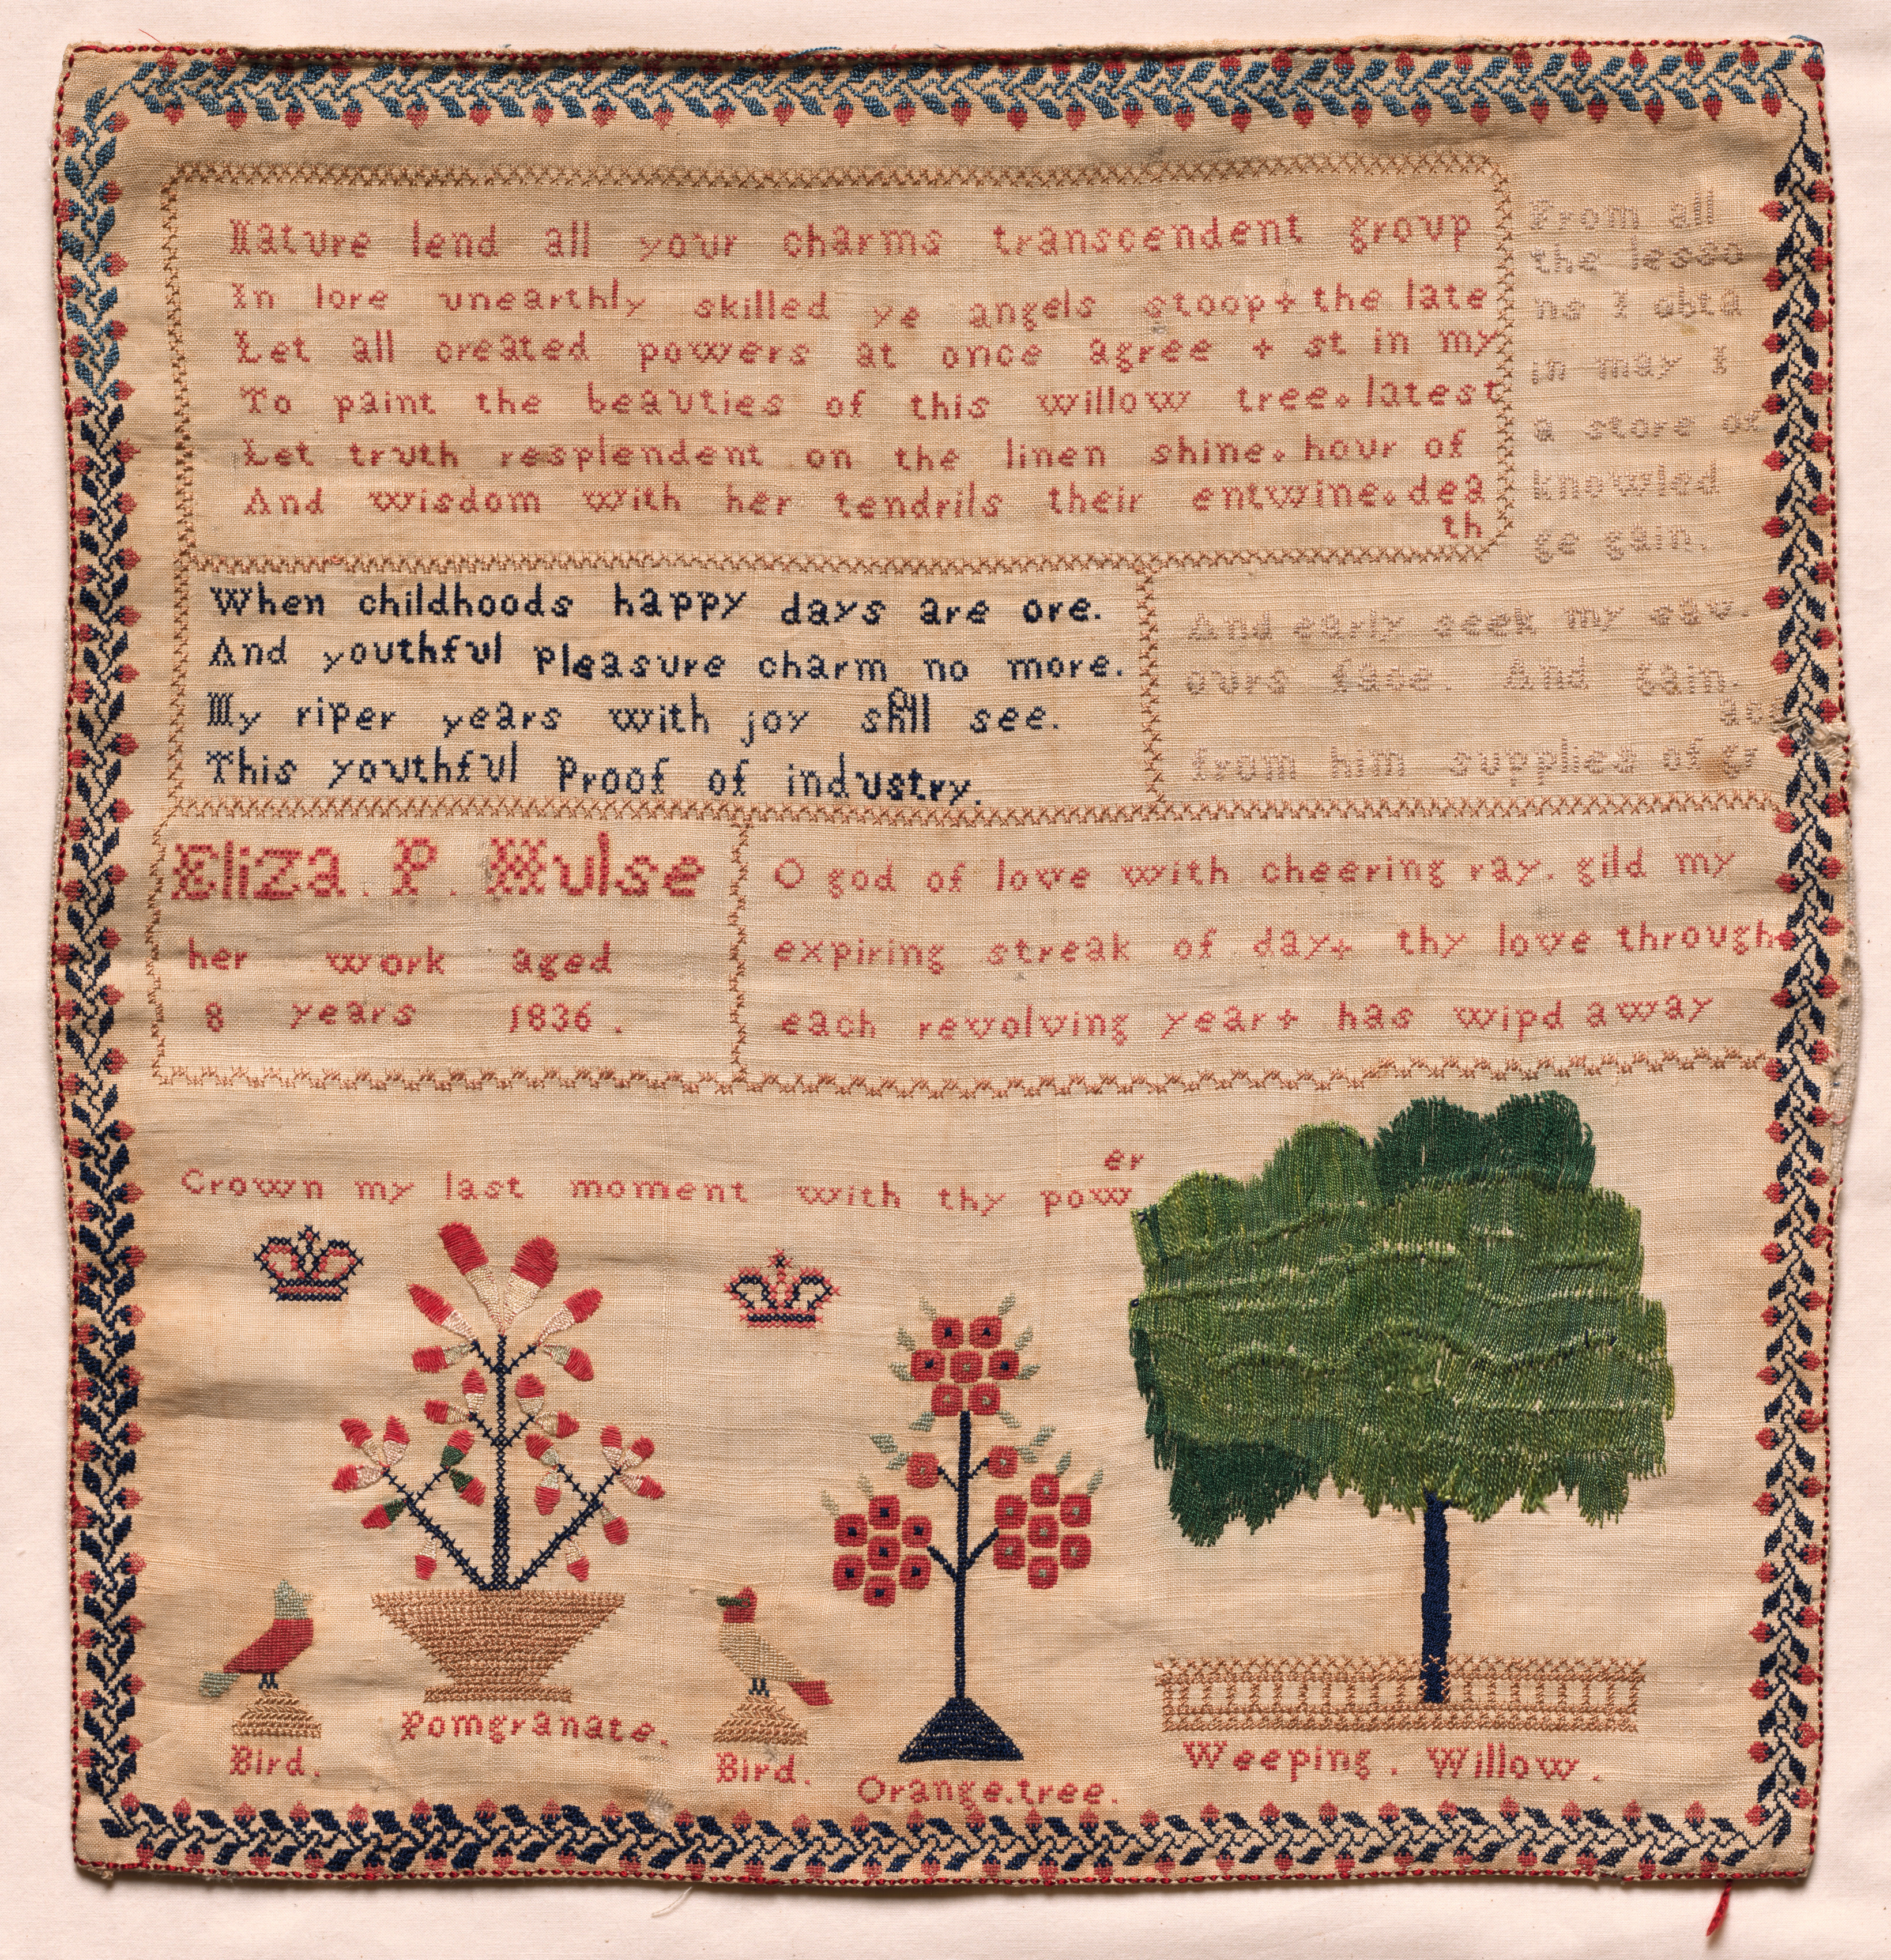 Nature lend all your charms transcendent group
In lore unearthly skilled ye angels stoop+ the late
Let all created powers at once agree + st in my
To paint the beauties of this willow tree. latest
Let truth resplendent on the linen shine. hour of
And wisdom with her tendrils their entwine. dea
th
From all
the lesso
ns I obta
in may I
a store of
knowled
ge gain.
When childhoods happy days are ore.
And youthful Pleasure charm no more.
My riper years with joy shll see.
This youthful Proof of industry.
And early seek my sav.
ours face. And gain.
from him supplies of gr
ace
Eliza. P. Hulse
her work aged
8 years 1836.
O god of love with cheering ray. gild my
expiring streak of day+ thy love through
each revolving year+ has wipd away
er
Crown my last moment with thy pow
Bird.
Pomgranate.
Bird.
Orange.tree.
Weeping. Willow.